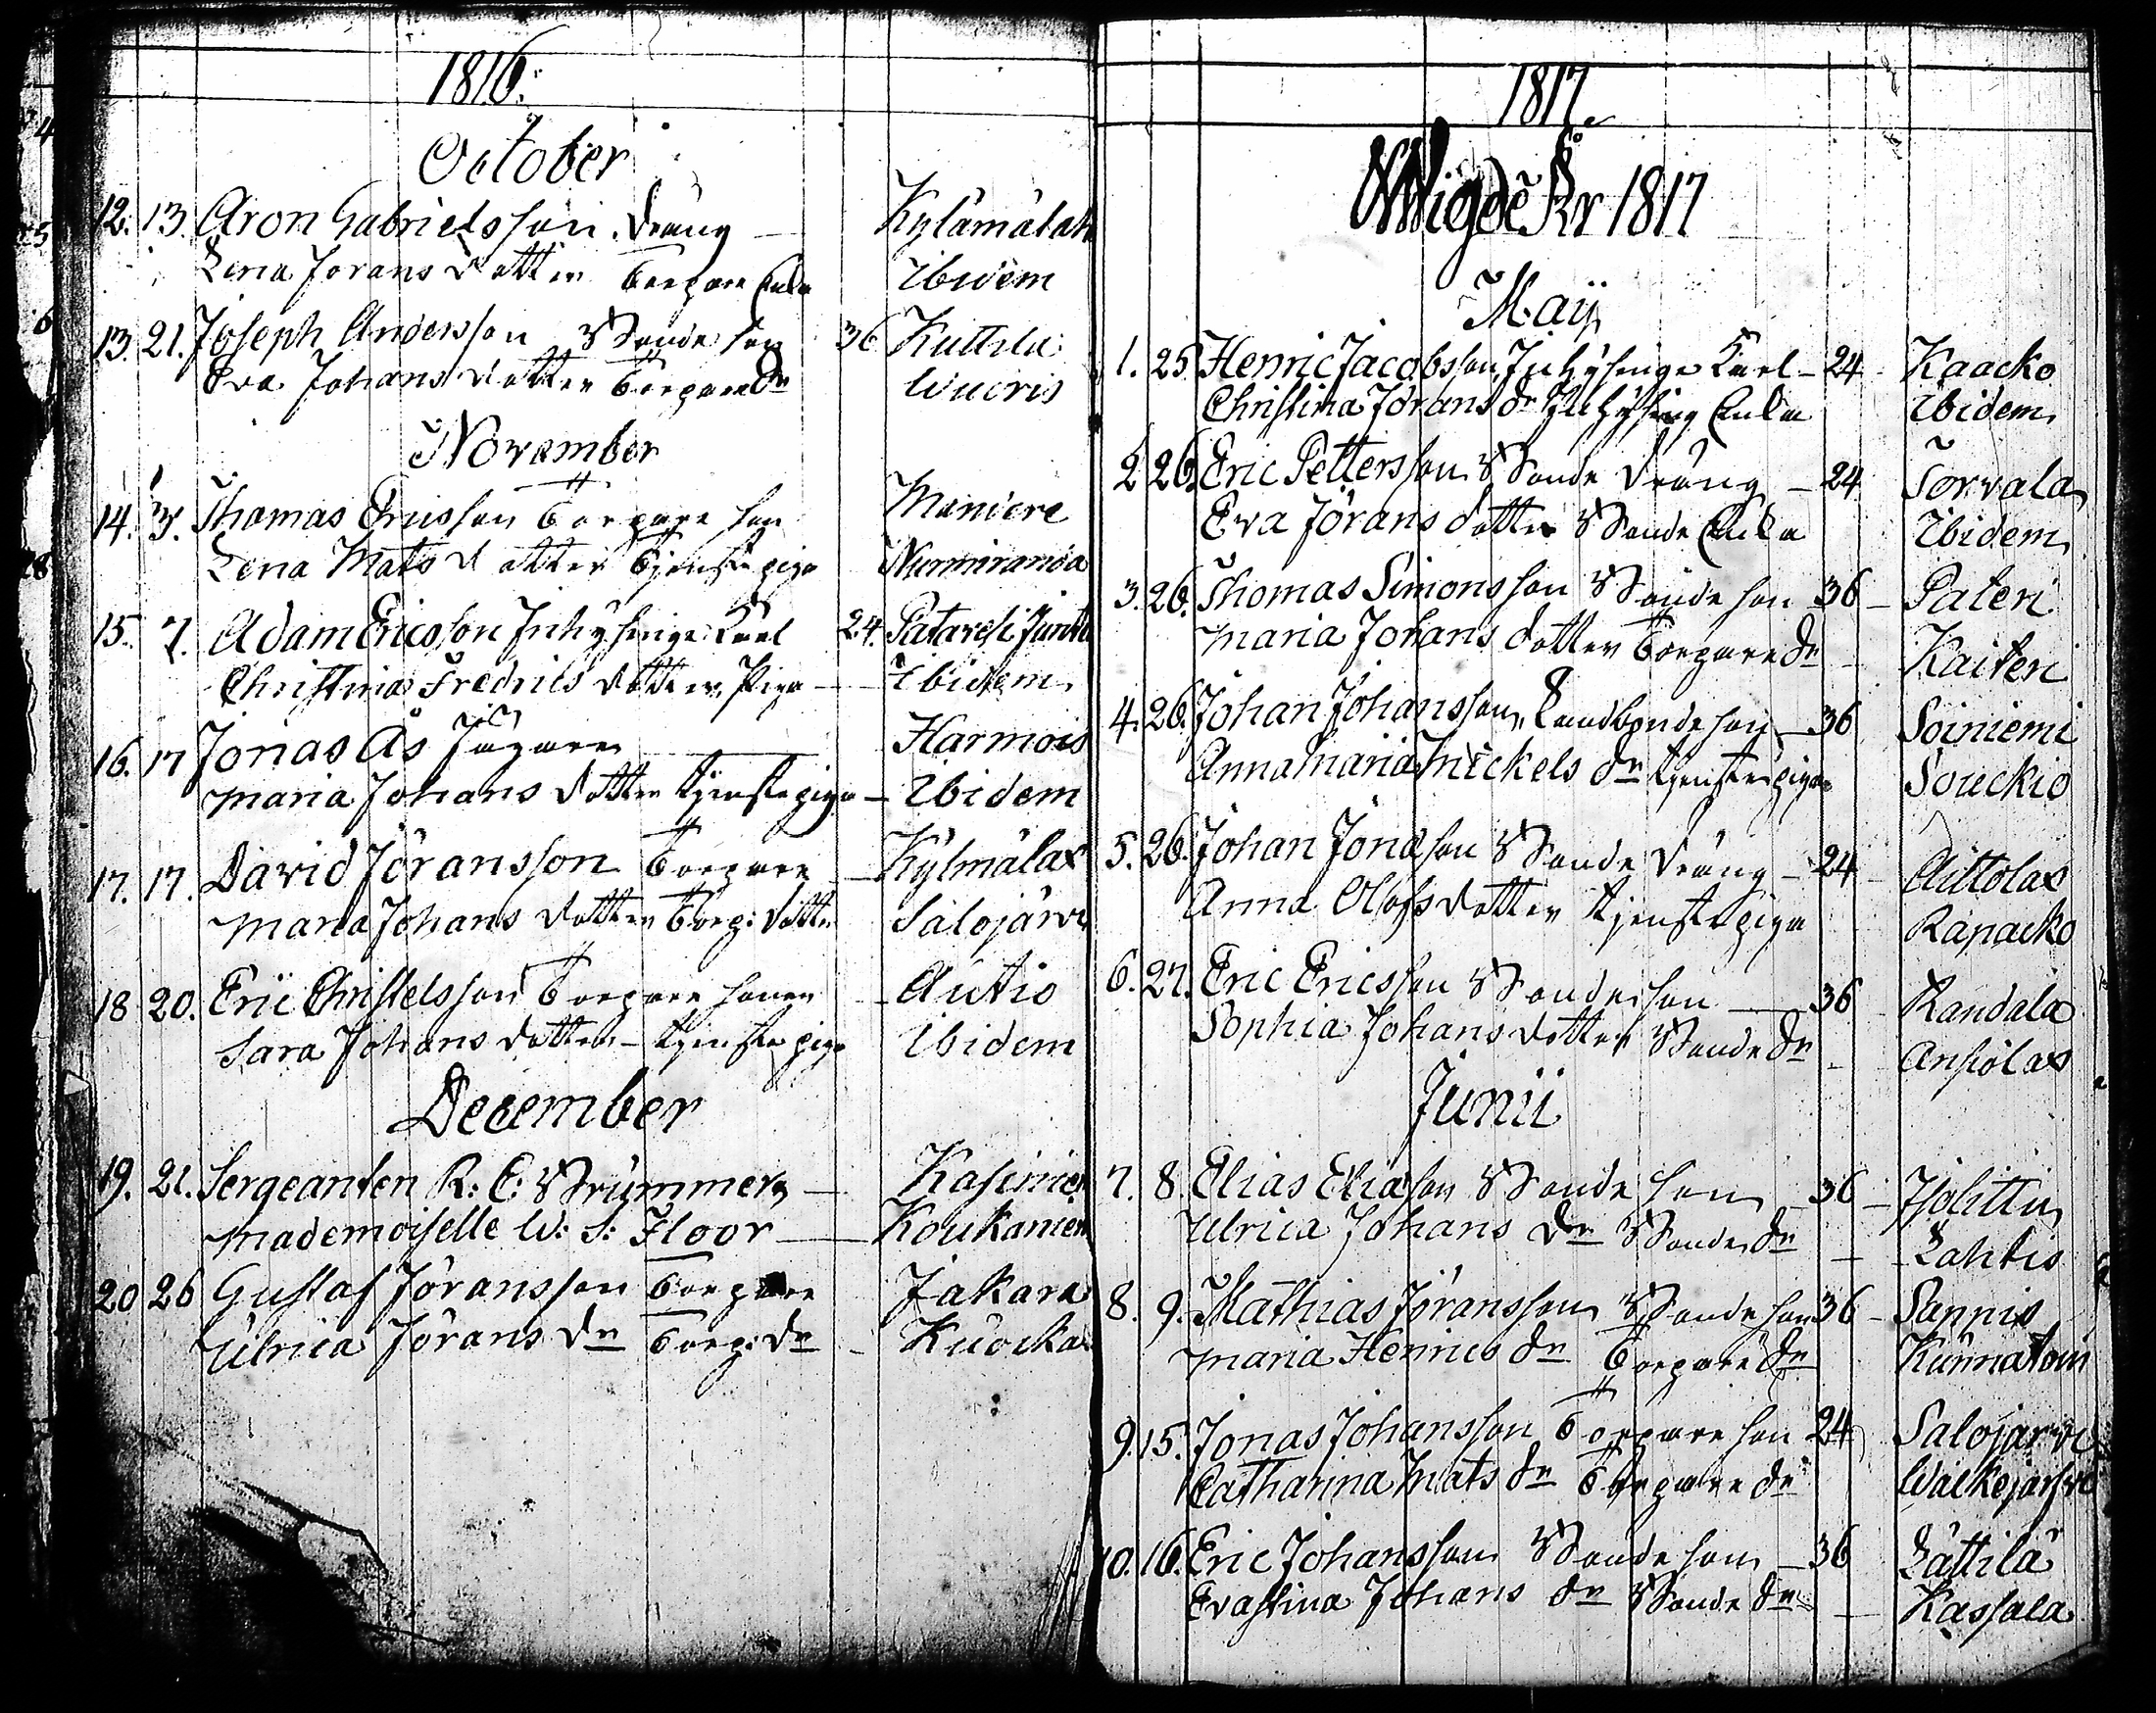 1816.
October
12. 13. Aron Gabrielsson. Dräng — Kylämälax
Lena Jörans Dotter Torpare Enka Ibidem
13. 21. Joseph Andersson Bonde son 36 Kuttila
Eva Johans dotter Torpare Dr Wucris
November
14. 3. Thomas Ericsson Torpare son Maniere
Lena Mats Dotter Tjenste piga Nurmiranda
15. 7. Adam Ericsson Inhysinge Karl 24. Patavesi
Christina Fredrics dotter, Piga — Ibidem
16. 17 Jonas Ås Jägare Harmois
Maria Johans dotter tjenste piga — Ibidem
17. 17. David Jöransson Torpare — Kylmälax
Maria Johans dotter Torp: Dotter Salojärvi
18 20. Eric Christelsson Torpare sonen — Autio
Sara Johans dotter — tjenste piga Ibidem
December
19. 21. Sergeanten R: C: Brummer — Kasinien
Mademoiselle W: S: Floor — Koukanien
20 26 Gustaf Jöransson Torpare Jakara
Ulrica Jörans Dr Torp: Dr — Kuocka
4
25
6
28
1817.
Wigde År 1817
Maij
1. 25. Henric Jacobsson, Inhysinge Karl — 24 Kaacko
Christina Jörans dr Inhysing Enka Ibidem
2 26. Eric Pettersson Bonde Dräng — 24 Torvala
Eva Jörans dotter Bonde Enka Ibidem
3. 26. Thomas Simonsson Bonde son 36 — Pateri
Maria Johans dotter Torpare Dr Kaiteri
4. 26. Johan Johansson, Landbonde son — 36 Soiniemi
Anna Maria Mickels dr tjenste piga Souckio
5. 26. Johan Jonasson Bonde Dräng — 24 Aittolax
Anna Olofs dotter tjenste piga Rapacko
6. 27. Eric Ericsson Bonde son — 36 Randala
Sophia Johans dotter Bonde Dr — Ansiolax
Junii
7. 8. Elias Eliasson Bonde son 36 — Isolittu
Ulrica Johans Dr Bonde Dr — Lahtis
8. 9. Mathias Jöransson Bonde son 36 — Sappis
Maria Henrics dr Torpare Dr
9. 15. Jonas Johansson Torpare son 24 Salojärvi
Catharina Mats dr Torpare dr Walkejärvi
10. 16. Eric Johansson Bonde son — 36 Lättilä
Evastina Johans dr Bonde dr — Kassala